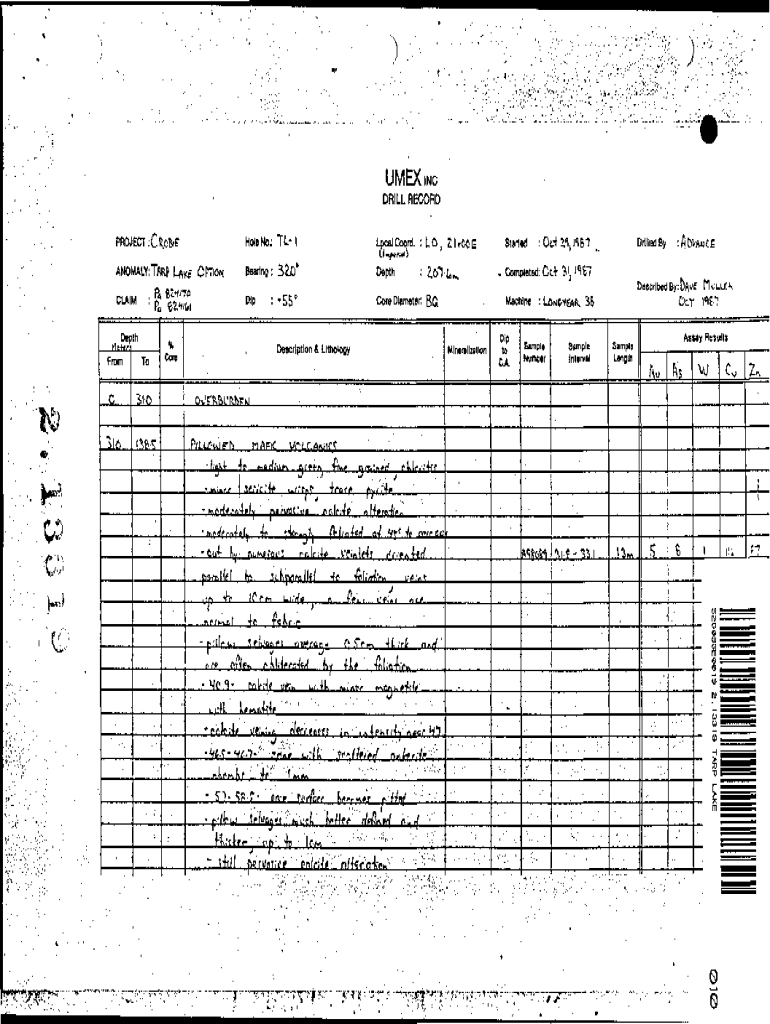 UMEX INC
DRILL RECORD
PROJECT : CROBE Hole No.: TL-1 Local Coord. : L0, 21+00E Started : Oct 29, 1987 Drilled By : ADVANCE
(Imperial)
ANOMALY: TARP LAKE OPTION Bearing : 320° Depth : 207.6m Completed: Oct 31, 1987
CLAIM : Pa 824170 Dip : -55° Core Diameter: BQ Machine : LONGYEAR 38 Described By: DAVE MULLEN
Pa 824161 OCT 1987
Depth Meters % Core Description & Lithology Mineralization Dip to C.A. Sample Number Sample Interval Sample Length Assay Results
From To Au As W Cu Zn
0 31.0 OVERBURDEN
31.0 138.5 PILLOWED MAFIC VOLCANICS
- light to medium green, fine grained, chloritic
- minor sericite wisps, trace pyrite
- moderately pervasive calcite alteration
- moderately to strongly foliated at 45° to core axis
- cut by numerous calcite veinlets oriented 31.8 - 33.1 1.3m 5 8 1
parallel to subparallel to foliation, veins
up to 10cm wide, a few veins are
normal to fabric
- pillow selvages average 0.5cm thick and
are often obliterated by the foliation
- 40.9 - calcite vein with minor magnetite
with hematite
- calcite veining decreases in intensity near 47
- 46.5 - 46.7 - zone with scattered ankerite
rhombs to 1mm
- 57 - 58.2 - core surface becomes pitted
- pillow selvages much better defined and
thicker, up to 1cm
- still pervasive calcite alteration
2.13319
52D09SE0019 2.13319 TARP LAKE
010